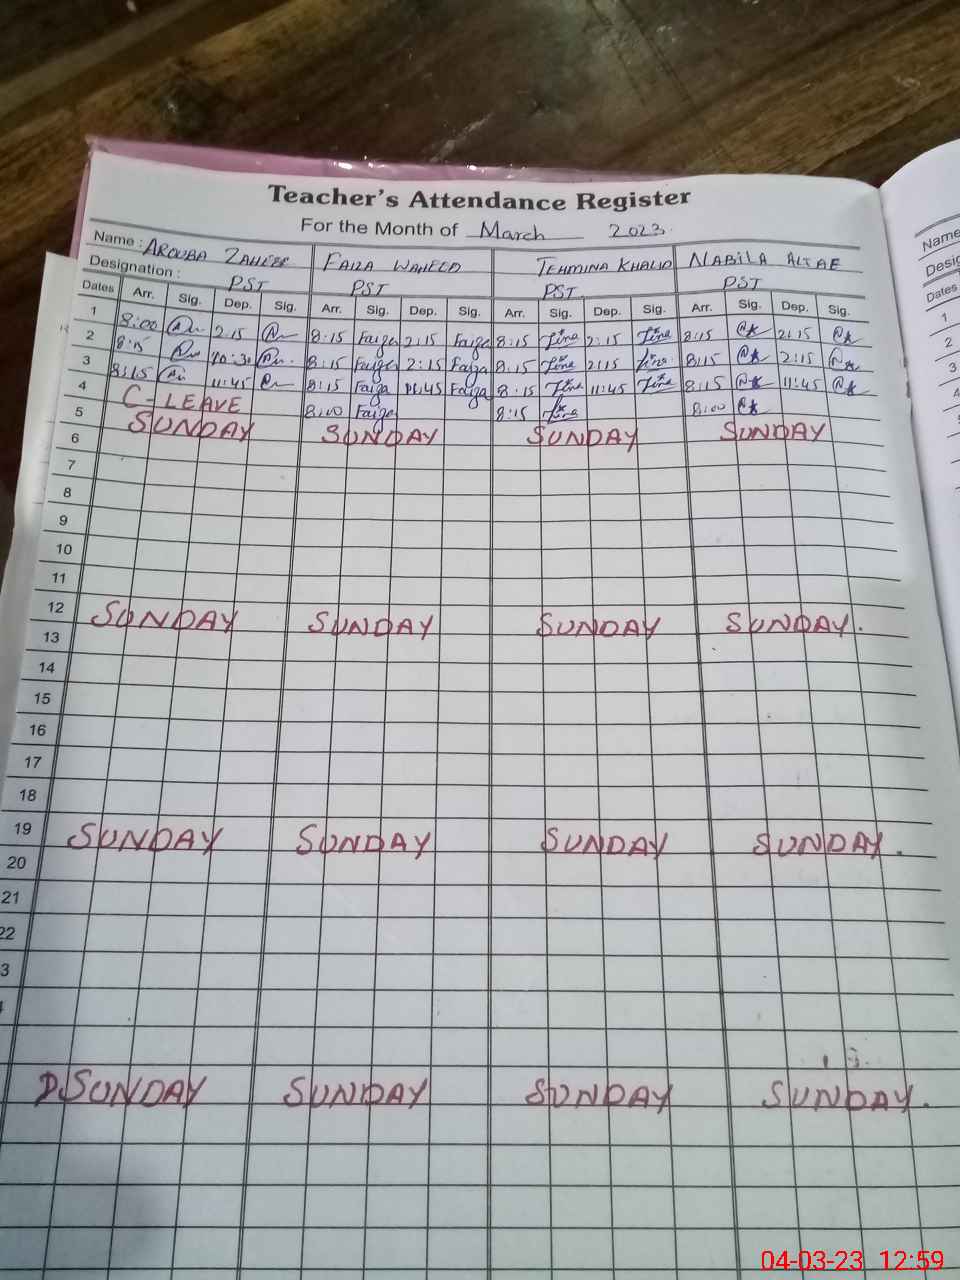 Teacher's Attendance Register
For the Month of March 2023.
Name : AROUBA ZAHEER FAIZA WAHEED TEHMINA KHALID NABILA ALTAF Name
Designation : PST PST PST. PST
Dates Arr. Sig. Dep. Sig. Arr. Sig. Dep. Sig. Arr. Sig. Dep. Sig. Arr. Sig. Dep. Sig. Dates
1 8:00 2:15 8:15 Faiza 2:15 Faiza 8:15 2:15 8:15 2:15 1
2 8:15 10:30 8:15 Faiza 2:15 Faiza 8:15 2:15 8:15 2:15 2
3 8:15 11:45 8:15 Faiza 11:45 Faiza 8:15 11:45 8:15 11:45 3
4 C-LEAVE 8:00 Faiza 8:15 8:00
5 SUNDAY SUNDAY SUNDAY SUNDAY
6
7
8
9
10
11
12 SUNDAY SUNDAY SUNDAY SUNDAY.
13
14
15
16
17
18
19 SUNDAY SUNDAY SUNDAY SUNDAY.
20
21
22
3
SUNDAY SUNDAY SUNDAY SUNDAY.
04-03-23 12:59